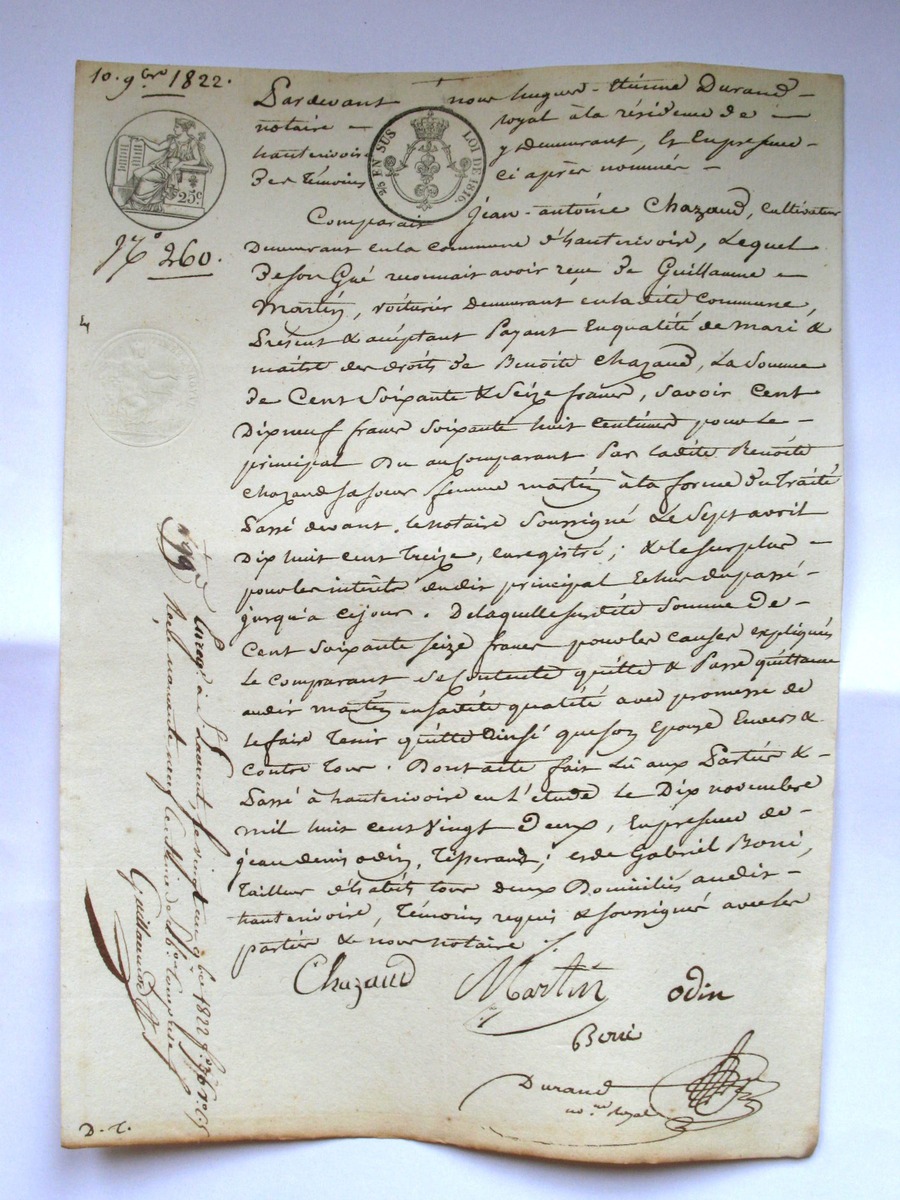 10. 9bre 1822.
25c
25 EN SUS LOI DE 1816.
No 260.
Pardevant nous hugues-Etienne Durand
notaire royal à la résidence de
hauterivoire y demeurant, Et En presence
Des Témoins ci après nommés
Comparait Jean-antoine Chazaud, cultivateur
Demeurant en la commune d'hauterivoire, Lequel
De son Gré reconnait avoir reçu De Guillaume
Martin, voiturier demeurant en la dite Commune,
Présent & acceptant Payant En qualité de mari &
maitre des droits de Benoite Chazaud, La Somme
De Cent Soixante & Seize francs, Savoir Cent
Dix neuf francs Soixante huit Centimes pour le
principal Du au Comparant Par ladite Benoite
Chazaud sa soeur femme martin à la forme du Traité
Passé devant le notaire Soussigné Le Sept avril
Dix huit cent Treize, Enregistré; & le surplus
pour les intérêts dudit principal Echus du passé
jusqu'à ce jour. De laquelle susdite Somme De
Cent Soixante Seize francs pour les causes expliquées
Le comparant se contente quitte & Passe quittance
audit martin en sadite qualité avec promesse de
le faire Tenir quitte Ainsi que son Epouse Envers &
Contre Tous. Dont acte fait Lu aux Parties &
Passé à hauterivoire en l'étude Le Dix novembre
mil huit cent Vingt Deux, En presence de
jean denis odin, Tisserand; et de Gabriel Borri,
Tailleur d'habits tous deux Domiciliés audit
hauterivoire, Témoins requis & soussignés avec les
parties & nous notaire
Chazaud Martin odin
Borri
Durand
nore royal
Enreg. à St Laurent, le vingt un 9bre 1822
Guillaume
D. C.